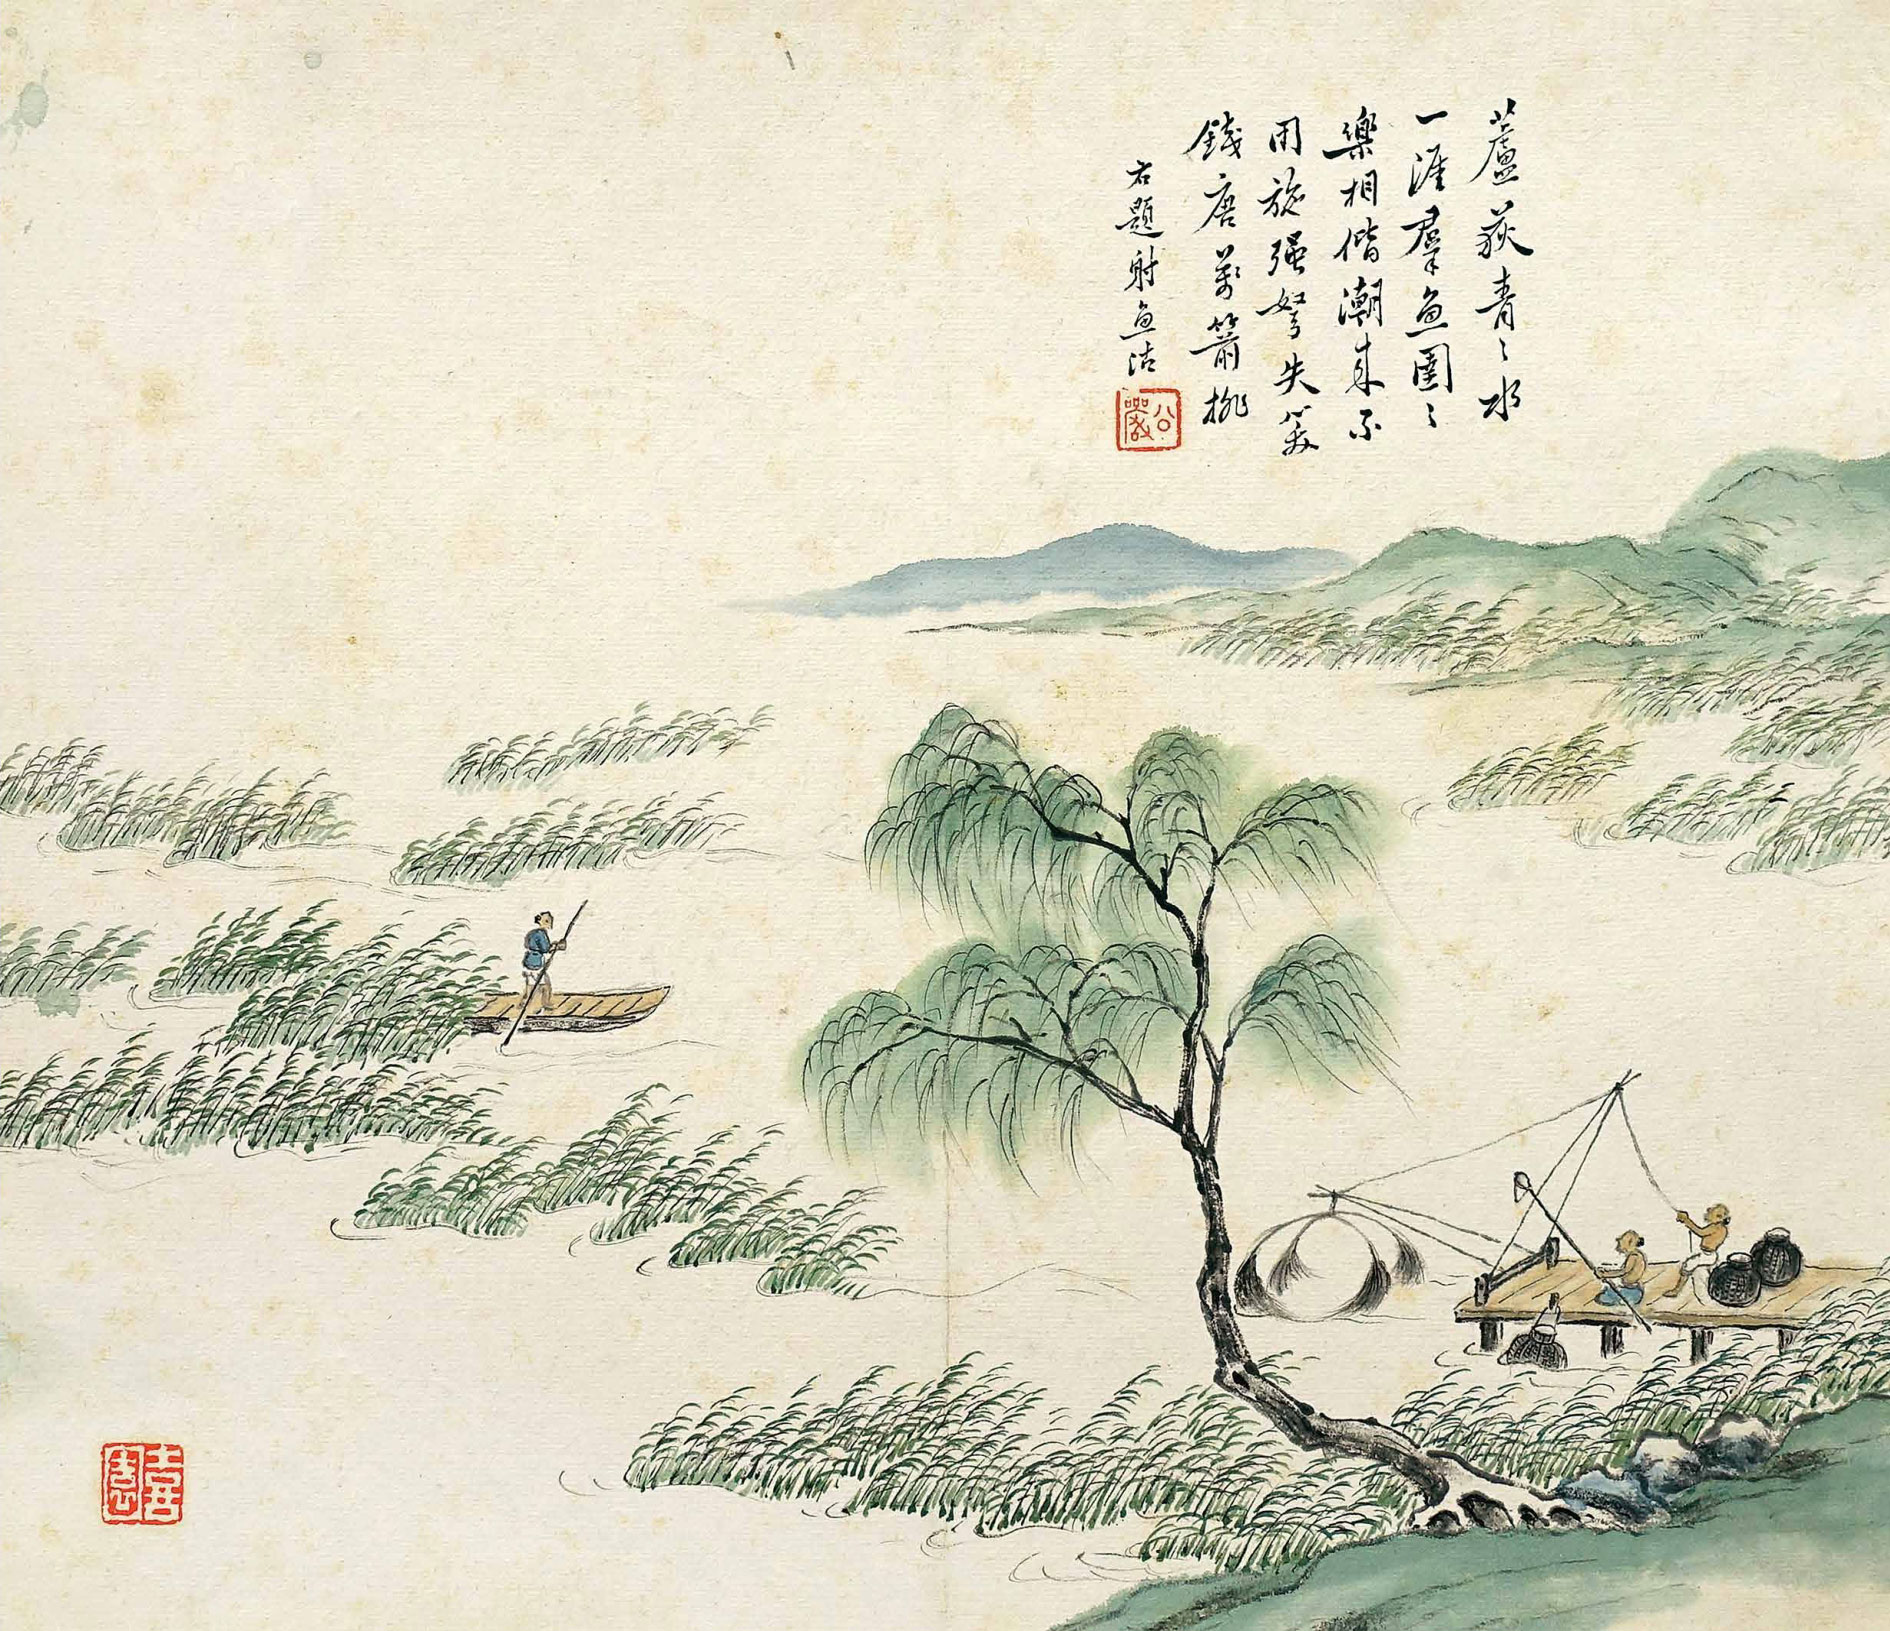 蘆荻青〻水
一涯羣魚圉〻
樂相偕潮來不
用施強弩失笑
錢唐萬箭排
右題射魚沽
公嚴